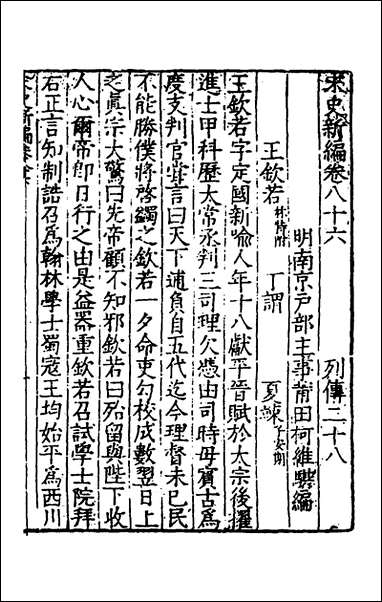 宋史新編卷八十六 列傳二十八
明南京戸部主事莆田柯維騏編
王欽若 林特附 丁謂 夏竦 子安期
王欽若字定國新喻人年十八獻平晉賦於太宗後擢
進士甲科歷太常丞判三司理欠憑由司時毋賓古爲
度支判官嘗言曰天下逋負自五代迄今理督未已民
不能勝僕將啓蠲之欽若一夕命吏勾校成數翌日上
之眞宗大驚曰先帝顧不知邪欽若曰殆留與陛下收
人心爾帝卽日行之由是益器重欽若召試學士院拜
右正言知制誥召爲翰林學士蜀寇王均始平爲西川